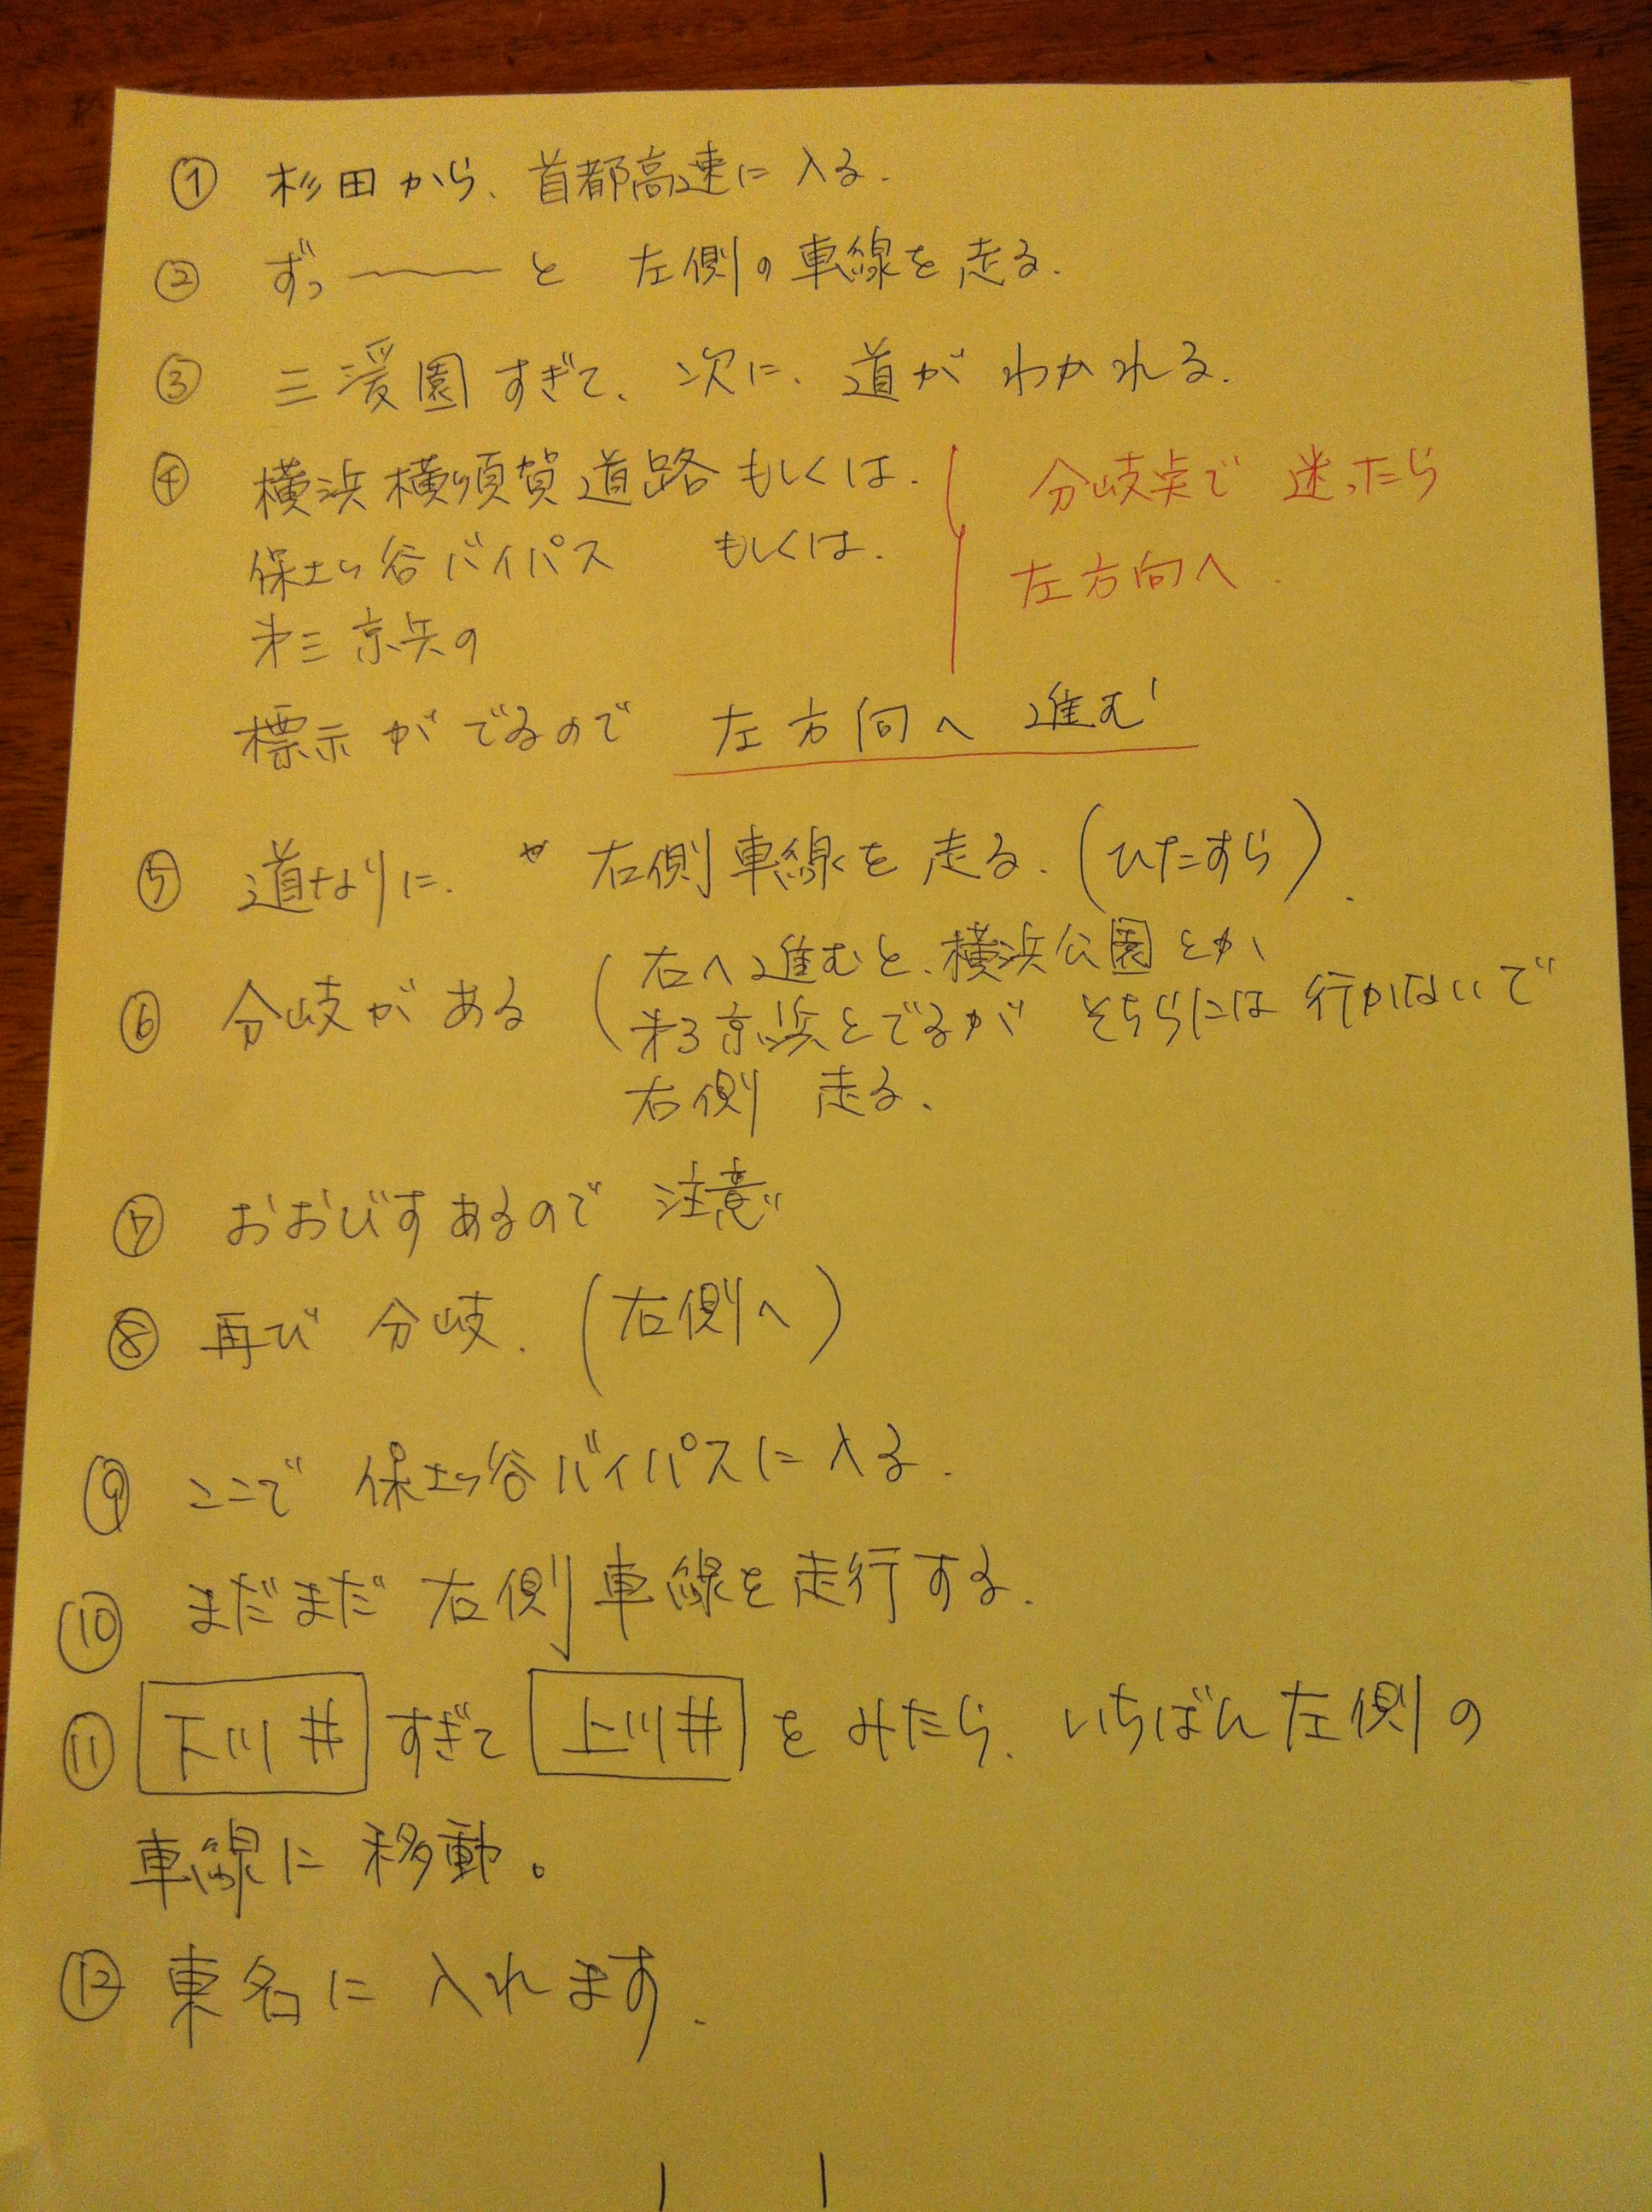 ① 杉田から、首都高速に入る.
② ずっ〜〜と 左側の車線を走る.
③ 三溪園すぎて、次に、道がわかれる.
④ 横浜横須賀道路もしくは.
分岐点で 迷ったら
保土ヶ谷バイパス もしくは.
左方向へ.
第三京浜の
標示がでるので 左方向へ進む
⑤ 道なりに. 右側車線を走る. (ひたすら).
⑥ 分岐がある (右へ進むと、横浜公園とか
第3京浜とでるが そちらには行かないで
右側 走る.
⑦ おおびすあるので 注意
⑧ 再び 分岐. (右側へ)
⑨ ここで 保土ヶ谷バイパスに入る.
⑩ まだまだ右側車線を走行する.
⑪ 下川井 すぎて 上川井 をみたら、いちばん左側の
車線に移動。
⑫ 東名に入れます.